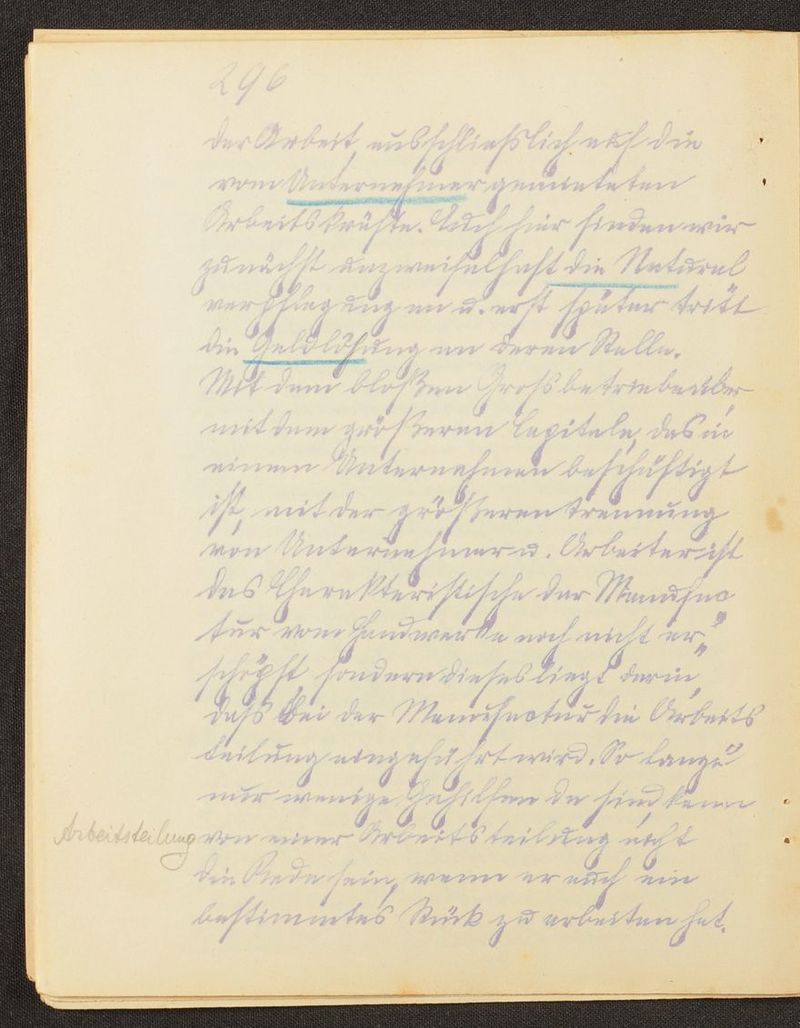 296
der Arbeit, ausschließlich auf die
vom Unternehmer gemieteten
Arbeitskräfte. Auch hier finden wir
zunächst unzweifelhaft die Natural
verpflegung an u. erst später tritt
die Geldlöhung an deren Stelle.
Mit dem bloßen Großbetriebe aber
mit dem größeren Capitale, das in
einem Unternehmen beschäftigt
ist, mit der größeren Trennung
von Unternehmer u. Arbeiter ist
das Charakteristische der Manufac
tur vom Handwerke noch nicht er„
schöpft, sondern dieses liegt darin,
daß bei der Manufactur die Arbeits
teilung eingeführt wird. So lange
nur wenige Gehilfen da sind, kann
Arbeitsteilung von einer Arbeitsteilung nicht
die Rede sein, wenn er auch ein
bestimmtes Stück zu arbeiten hat.